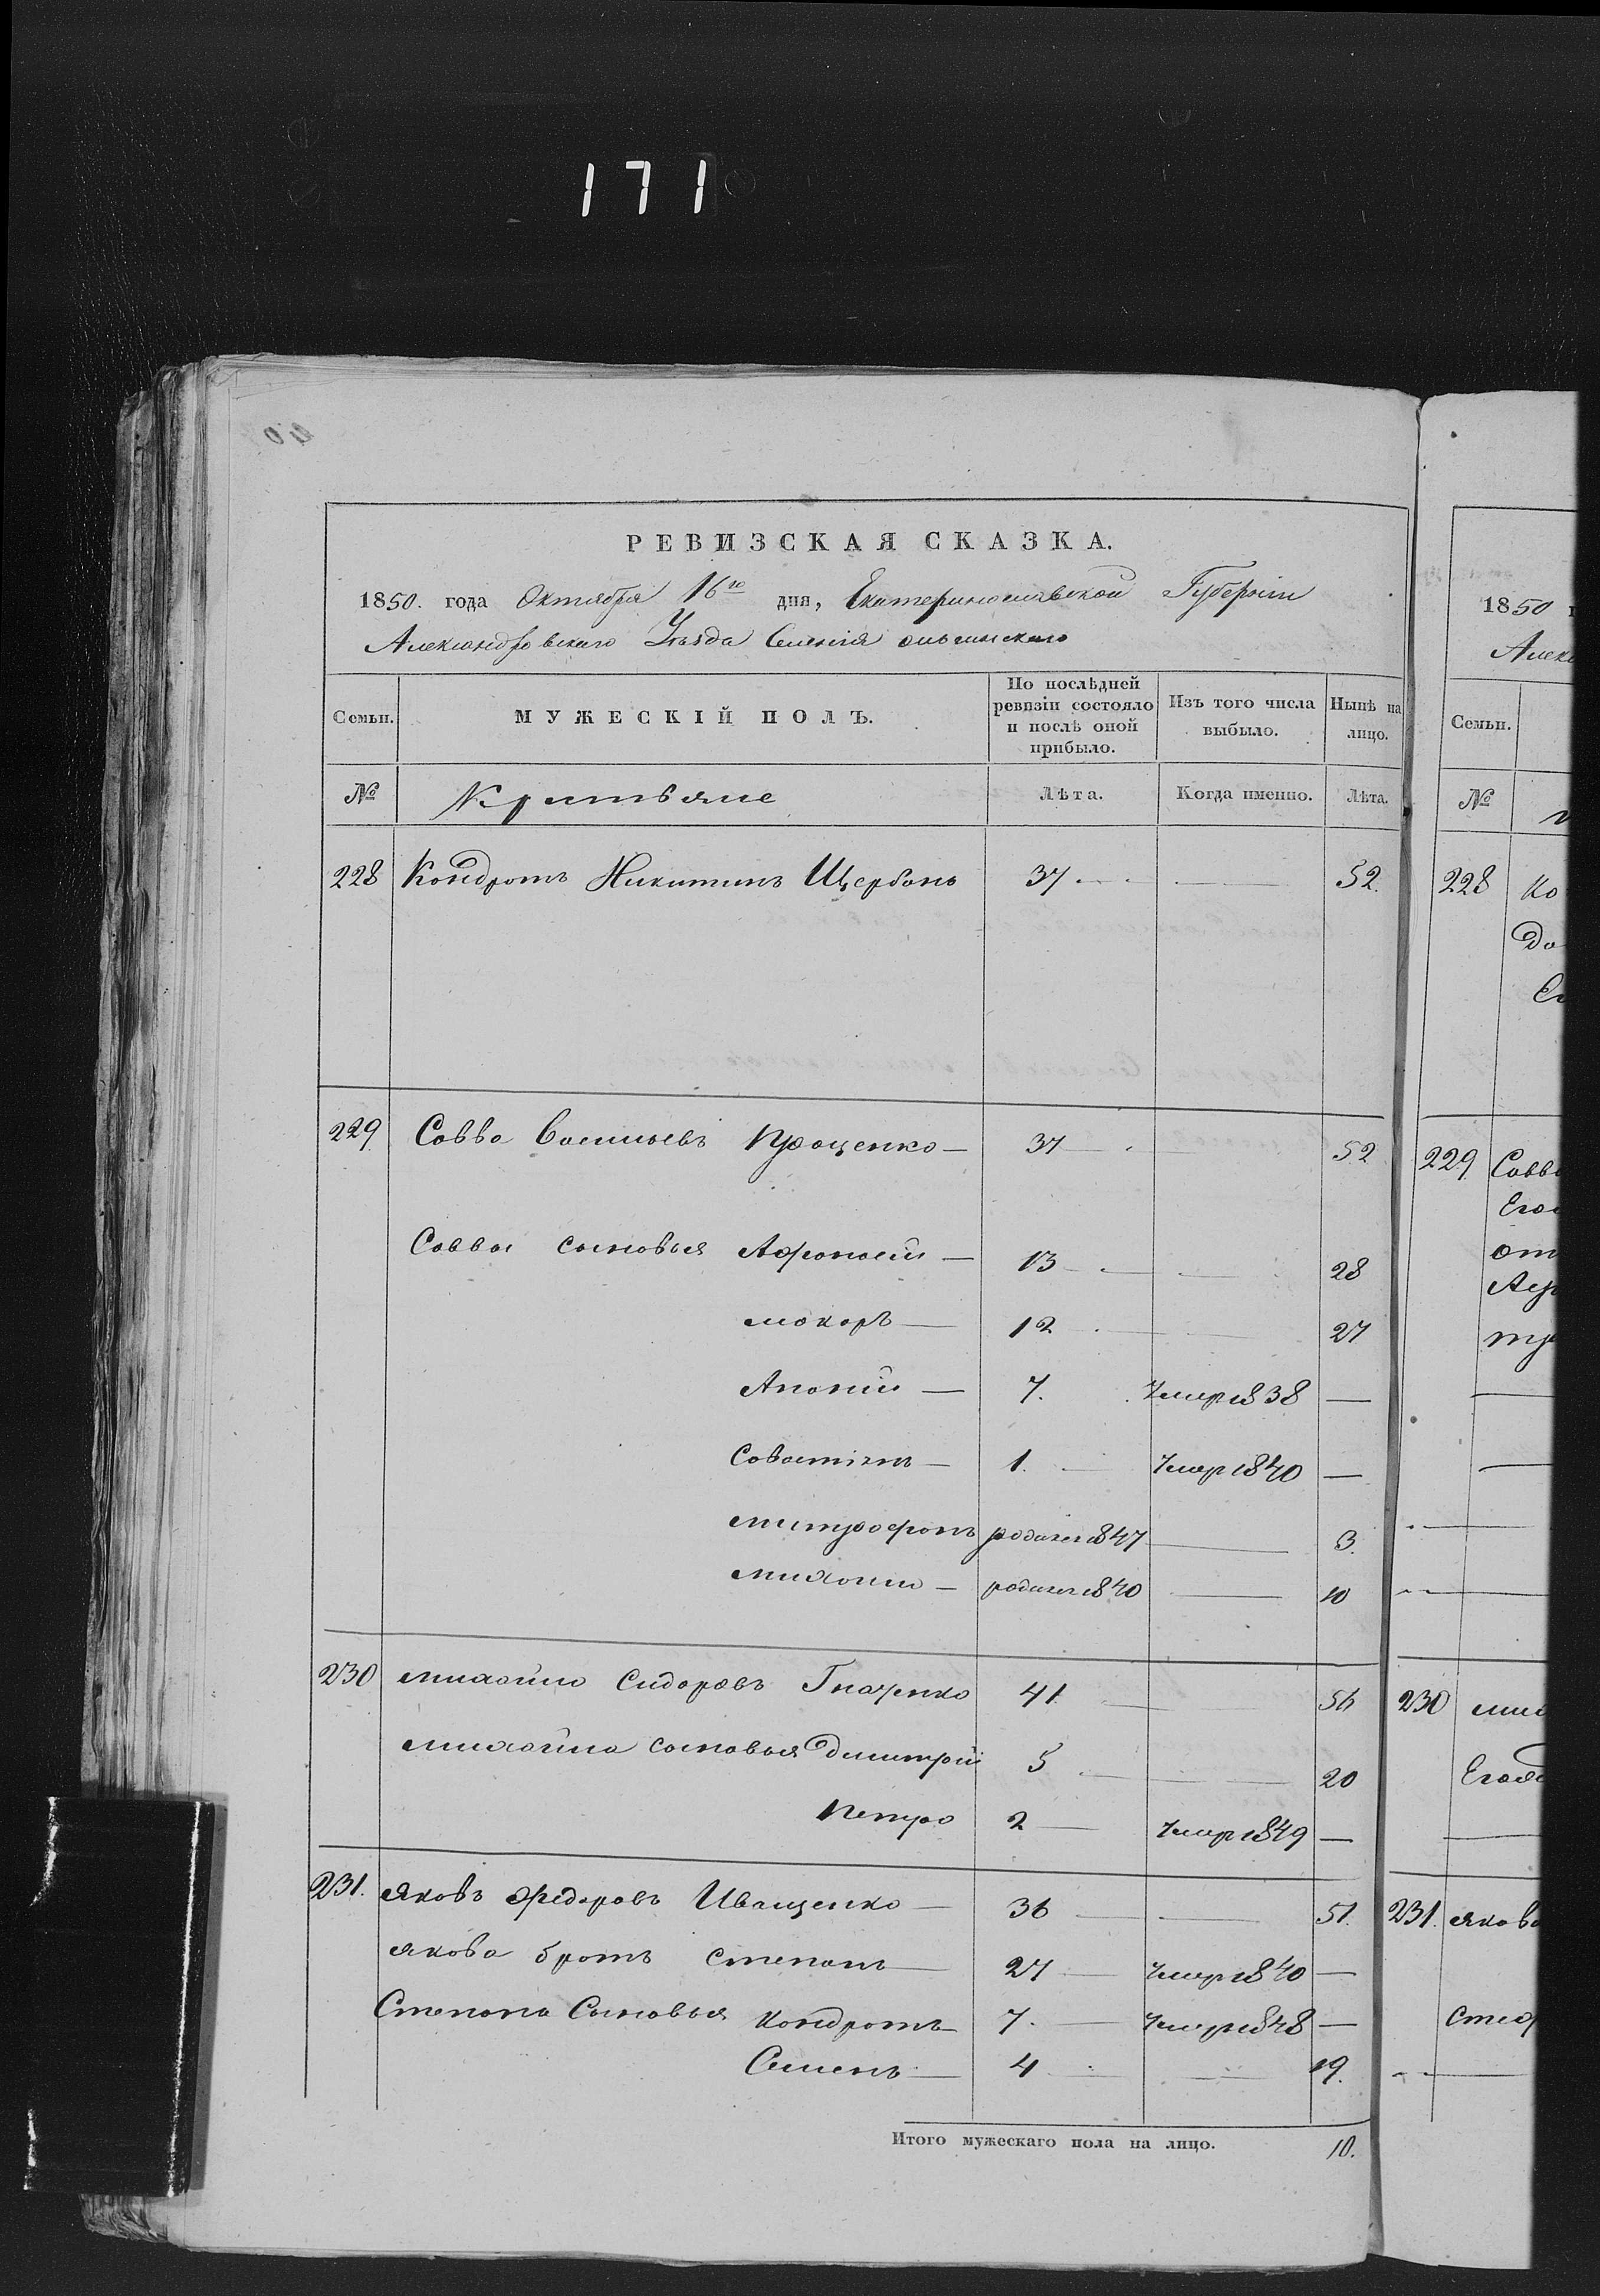 171
РЕВИЗСКАЯ СКАЗКА.
1850. года Октября 16го дня, Екатеринославской Губерніи
Александровскаго Уѣзда Селенія
Семьи. МУЖЕСКІЙ ПОЛЪ. По послѣдней ревизіи состояло и послѣ оной прибыло. Изъ того числа выбыло. Нынѣ на лицо.
№ Лѣта. Когда именно. Лѣта.
228 Кондратъ Никитинъ Щербань 37 52.
229 Савва Васильевъ Проценко 37 52
Саввы сыновья Афонасій 13 28
Макаръ 12 27
7. Умеръ 1838
1. Умеръ 1840
Митрофанъ родился 1847 3.
родился 1840 10
230 Михайло Сидоровъ Гнатенко 41 56
Михайла сыновья Дмитрій 5 20
Петро 2 Умеръ 1849
231. Яковъ Федоровъ Иващенко 36 51.
Якова братъ Степанъ 27 Умеръ 1840
Степана Сыновья Кондратъ 7. Умеръ 1848
Семенъ 4 19.
Итого мужескаго пола на лицо. 10.
1850
Семьи.
№
228
229
230
231.